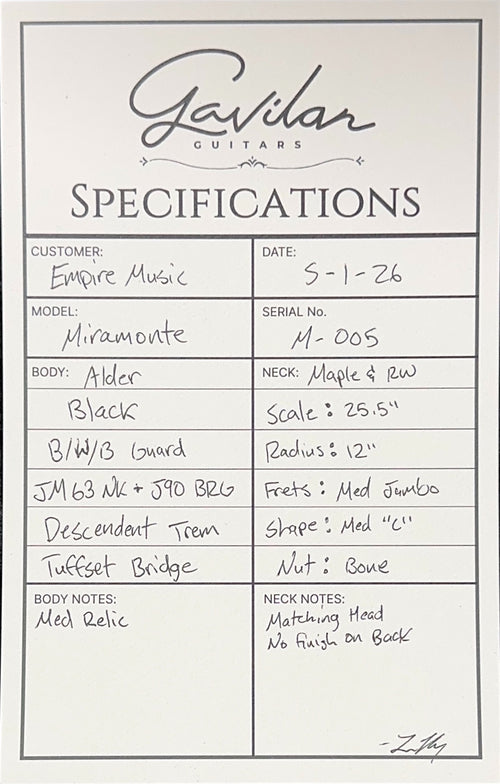 Gavilan
GUITARS
SPECIFICATIONS
CUSTOMER:
Empire Music
DATE:
5-1-26
MODEL:
Miramonte
SERIAL No.
M-005
BODY: Alder
Black
B/W/B Guard
JM63 NK + J90 BRG
Descendent Trem
Tuffset Bridge
NECK: Maple & RW
Scale: 25.5"
Radius: 12"
Frets: Med Jumbo
Shape: Med "C"
Nut: Bone
BODY NOTES:
Med Relic
NECK NOTES:
Matching Head
No finish on Back